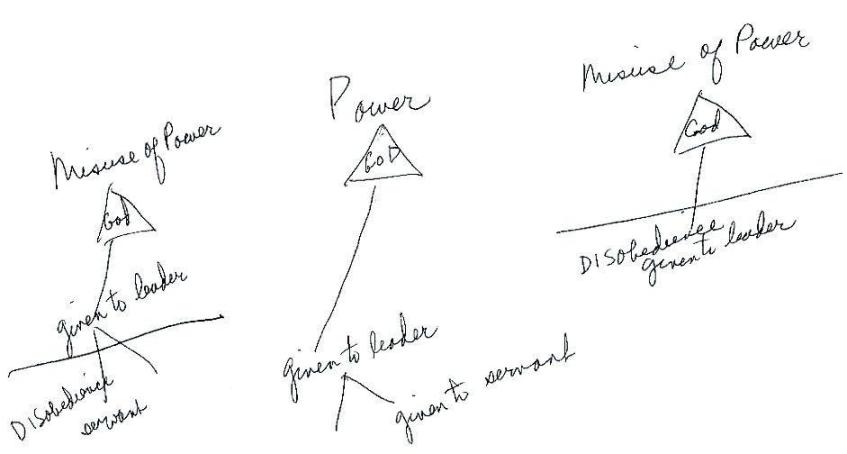 Misuse of Power
God
given to leader
DISobedience
servant
Power
GOD
given to leader
given to servant
Misuse of Power
God
DISobedience
given to leader